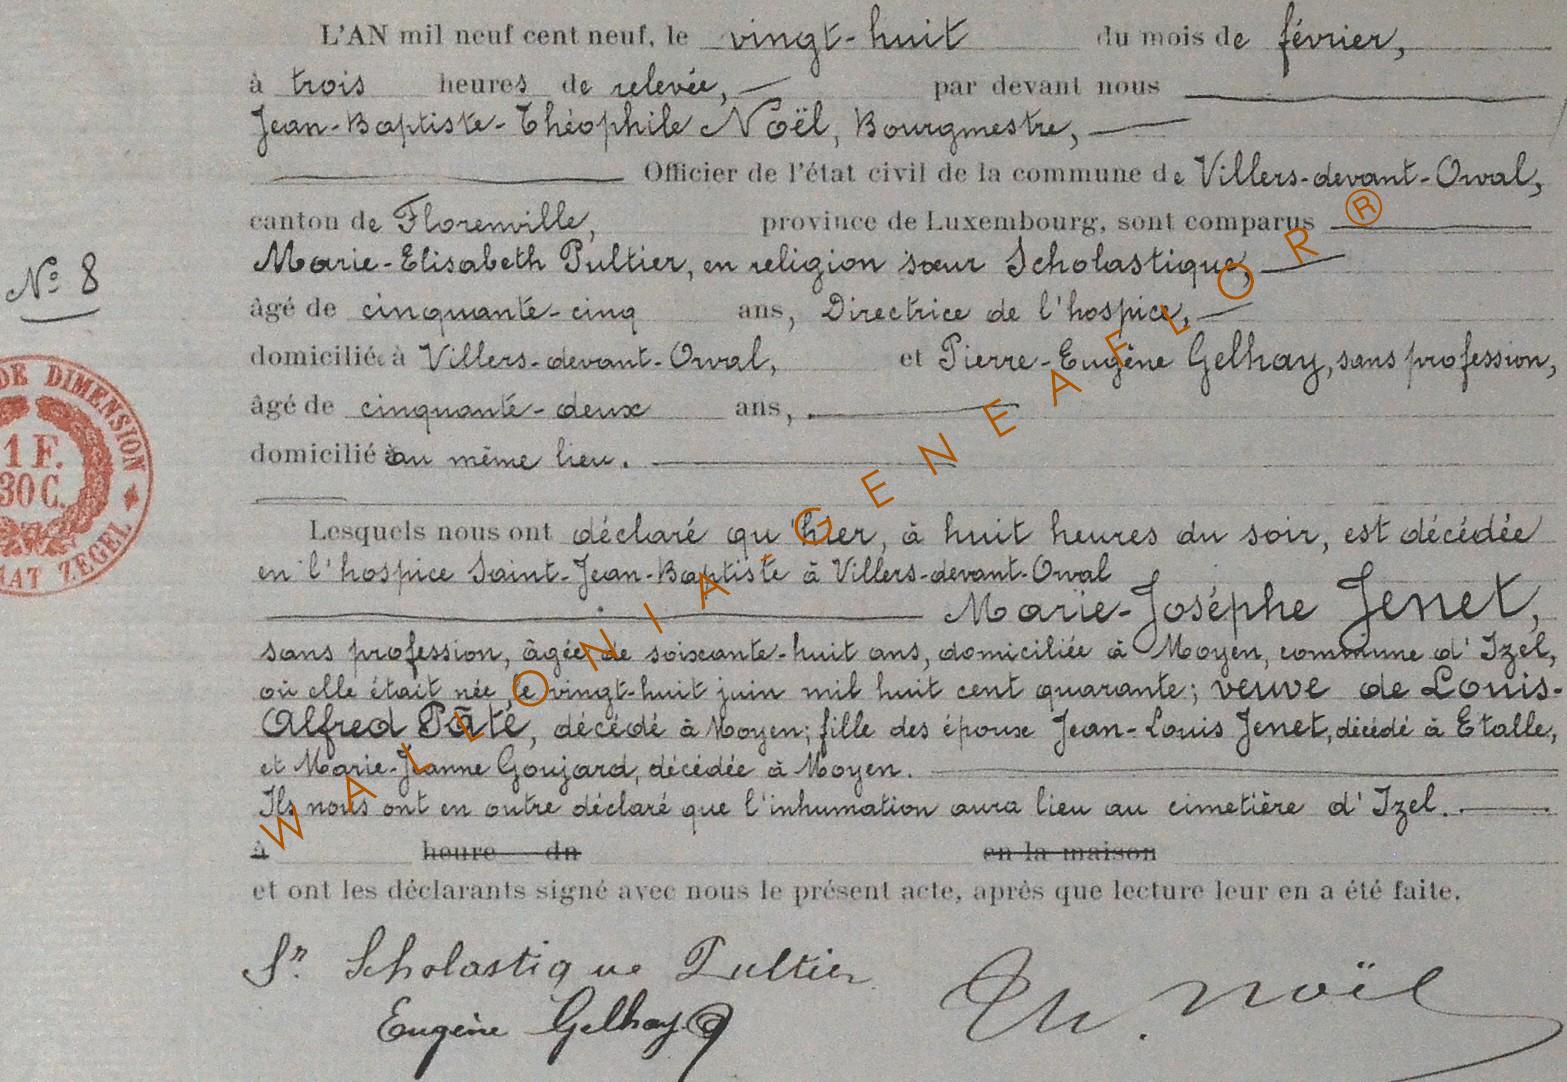 L'AN mil neuf cent neuf, le vingt-huit du mois de février,
à trois heures de relevée, par devant nous
Jean-Baptiste-Théophile Noël, Bourgmestre,
Officier de l'état civil de la commune de Villers-devant-Orval,
canton de Florenville, province de Luxembourg, sont comparus
Marie-Elisabeth Pultier, en religion sœur Scholastique,
âgé de cinquante-cinq ans, Directrice de l'hospice,
domiciliée à Villers-devant-Orval, et Pierre-Eugène Gelhay, sans profession,
âgé de cinquante-deux ans,
domicilié au même lieu.
Lesquels nous ont déclaré qu'hier, à huit heures du soir, est décédée
en l'hospice Saint-Jean-Baptiste à Villers-devant-Orval
Marie-Josèphe Jenet,
sans profession, âgée de soixante-huit ans, domiciliée à Moyen, commune d'Izel,
où elle était née le vingt-huit juin mil huit cent quarante; veuve de Louis-
Alfred Pâté, décédé à Moyen; fille des époux Jean-Louis Jenet, décédé à Etalle,
et Marie-Jeanne Goujard, décédée à Moyen.
Ils nous ont en outre déclaré que l'inhumation aura lieu au cimetière d'Izel.
à heure du en la maison
et ont les déclarants signé avec nous le présent acte, après que lecture leur en a été faite.
Sr. Scholastique Pultier
Eugène Gelhay
Th. Noël
N° 8
DE DIMENSION
1 F.
30 C.
ZEGEL
WALLONIA-GENEAFLOR ®